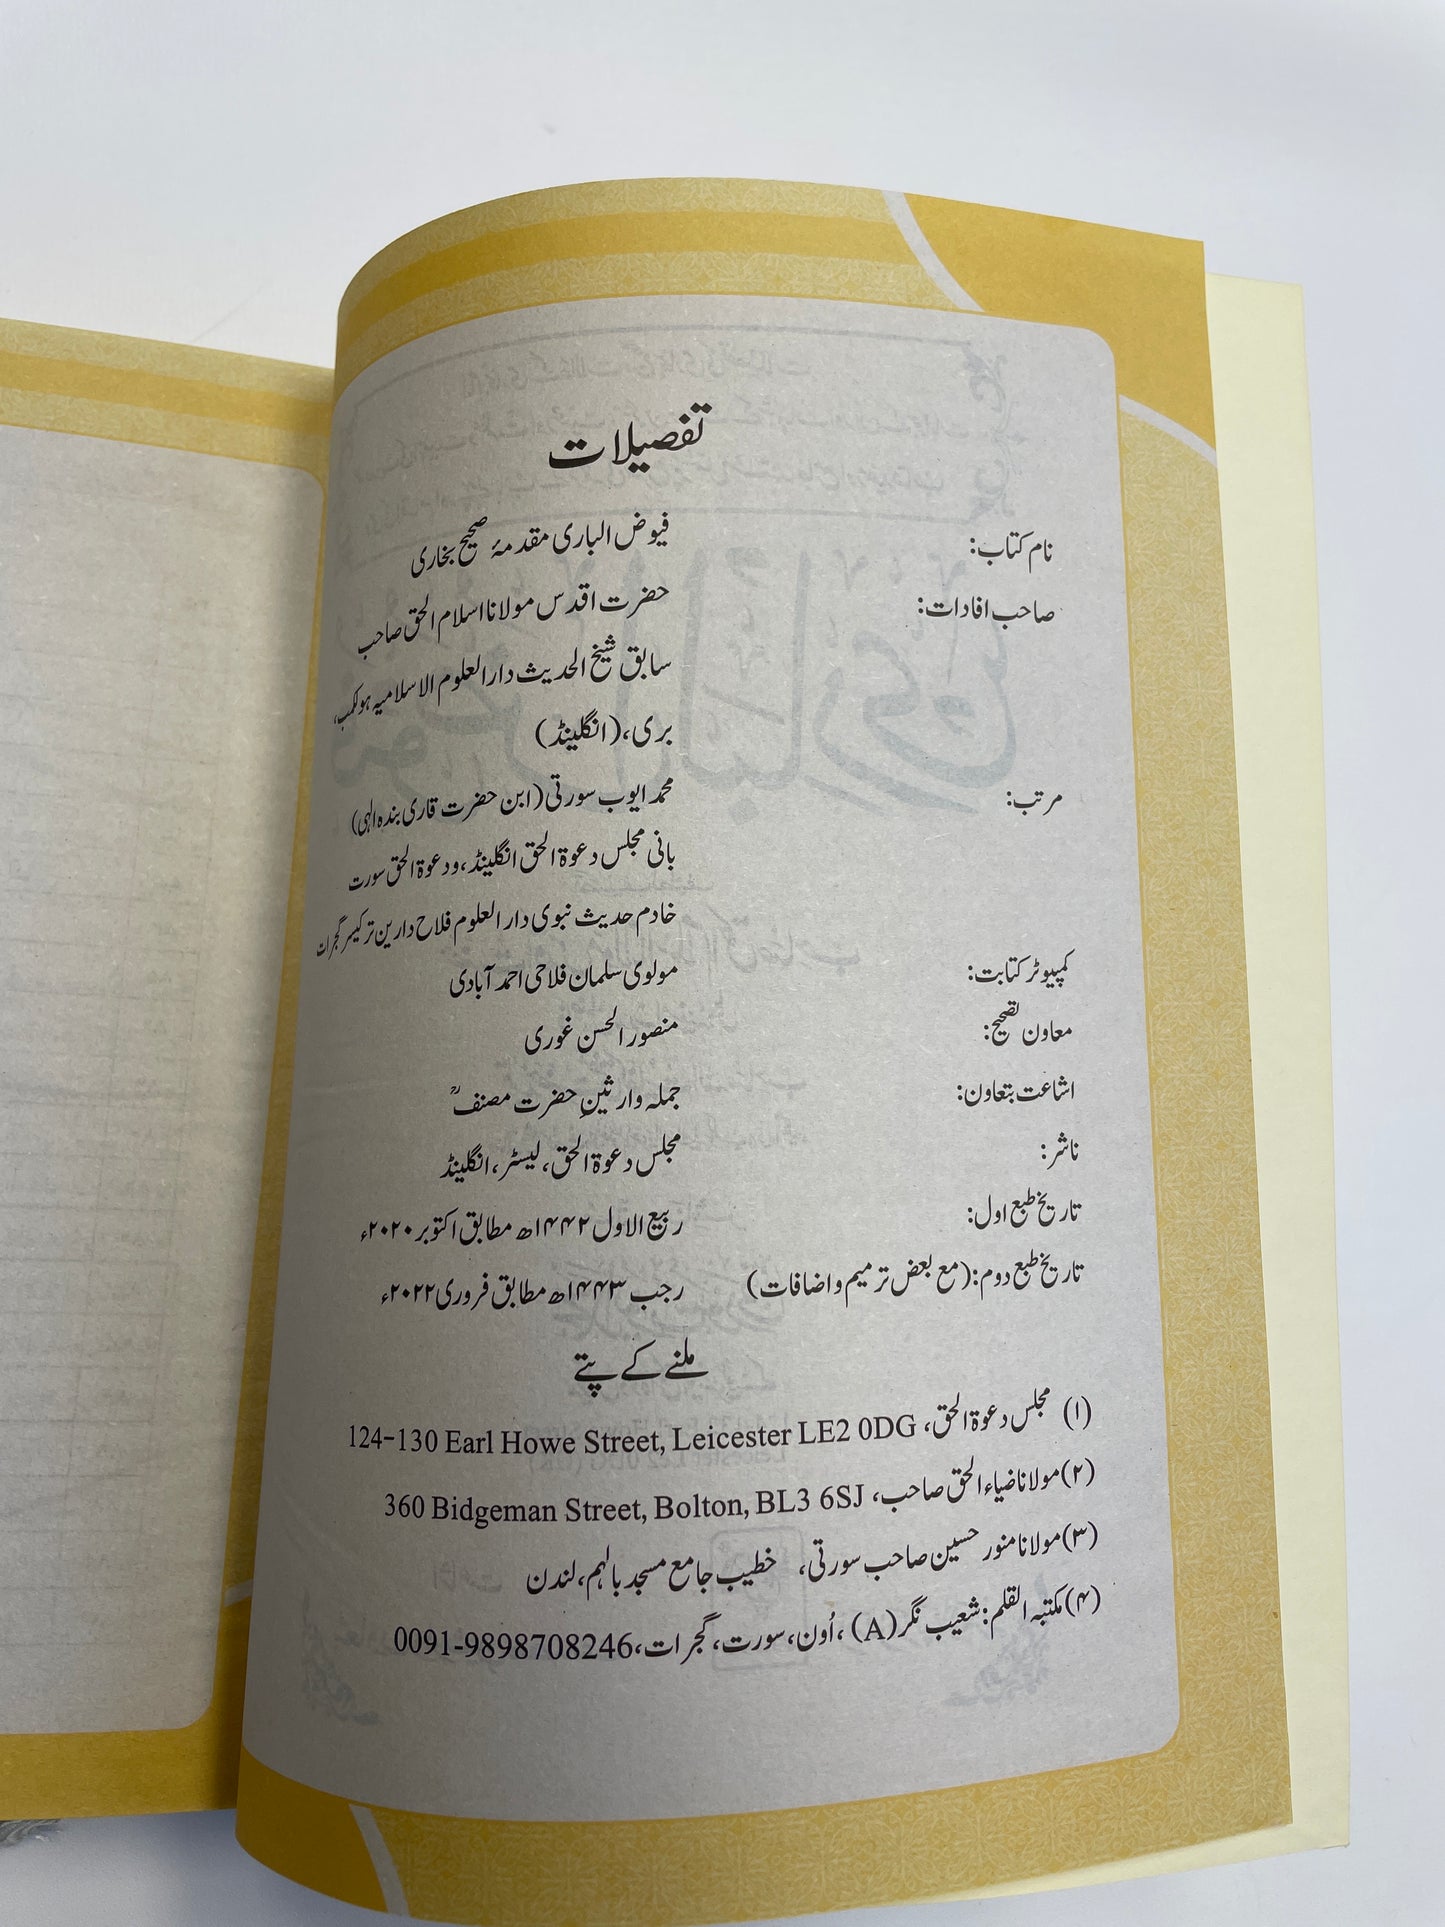 تفصیلات
نام کتاب: فیوض الباری مقدمۂ صحیح بخاری
صاحب افادات: حضرت اقدس مولانا اسلام الحق صاحب
سابق شیخ الحدیث دارالعلوم الاسلامیہ ہولکمب،
بری، (انگلینڈ)
مرتب: محمد ایوب سورتی (ابن حضرت قاری بندہ الٰہی)
بانی مجلس دعوۃ الحق انگلینڈ، ودعوۃ الحق سورت
خادم حدیث نبوی دارالعلوم فلاح دارین ترکیسر گجرات
کمپیوٹر کتابت: مولوی سلمان فلاحی احمد آبادی
معاون تصحیح: منصور الحسن غوری
اشاعت بتعاون: جملہ وارثینِ حضرت مصنفؒ
ناشر: مجلس دعوۃ الحق، لیسٹر، انگلینڈ
تاریخ طبع اول: ربیع الاول ۱۴۴۲ھ مطابق اکتوبر ۲۰۲۰ء
تاریخ طبع دوم: (مع بعض ترمیم و اضافات) رجب ۱۴۴۳ھ مطابق فروری ۲۰۲۲ء
ملنے کے پتے
(۱) مجلس دعوۃ الحق، 124-130 Earl Howe Street, Leicester LE2 0DG
(۲) مولانا ضیاء الحق صاحب، 360 Bidgeman Street, Bolton, BL3 6SJ
(۳) مولانا منور حسین صاحب سورتی، خطیب جامع مسجد بالہم، لندن
(۴) مکتبہ القلم: شعیب نگر (A)، اُون، سورت، گجرات، 0091-9898708246